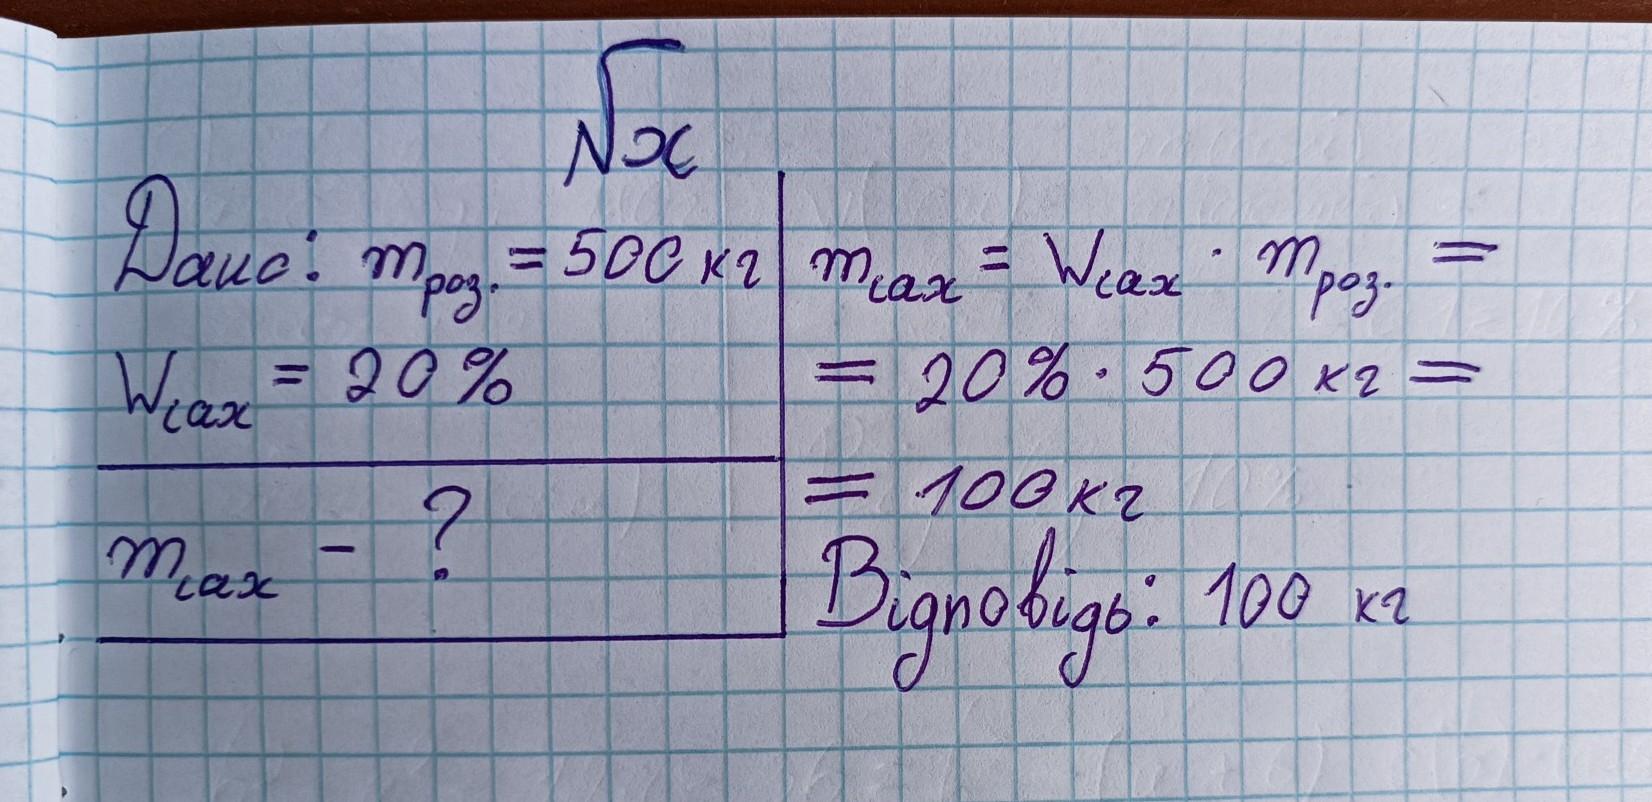 √x
Дано: mроз. = 500 кг
Wцах = 20%
mцах - ?
mцах = Wцах · mроз. =
= 20% · 500 кг =
= 100 кг
Відповідь: 100 кг